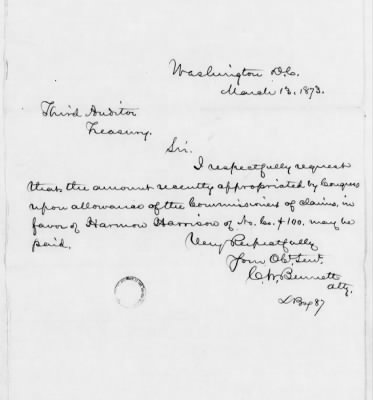 Washington D.C.
March 13, 1873.
Third Auditor
Treasury.
Sir.
I respectfully request
that the amount recently appropriated by Congress
upon allowance of the Commissioners of Claims, in
favor of Harmon Harrison of No. Co. $100. may be
paid.
Very Respectfully
Your Obt. Servt.
C. W. Bennett
Atty.
L Box 87